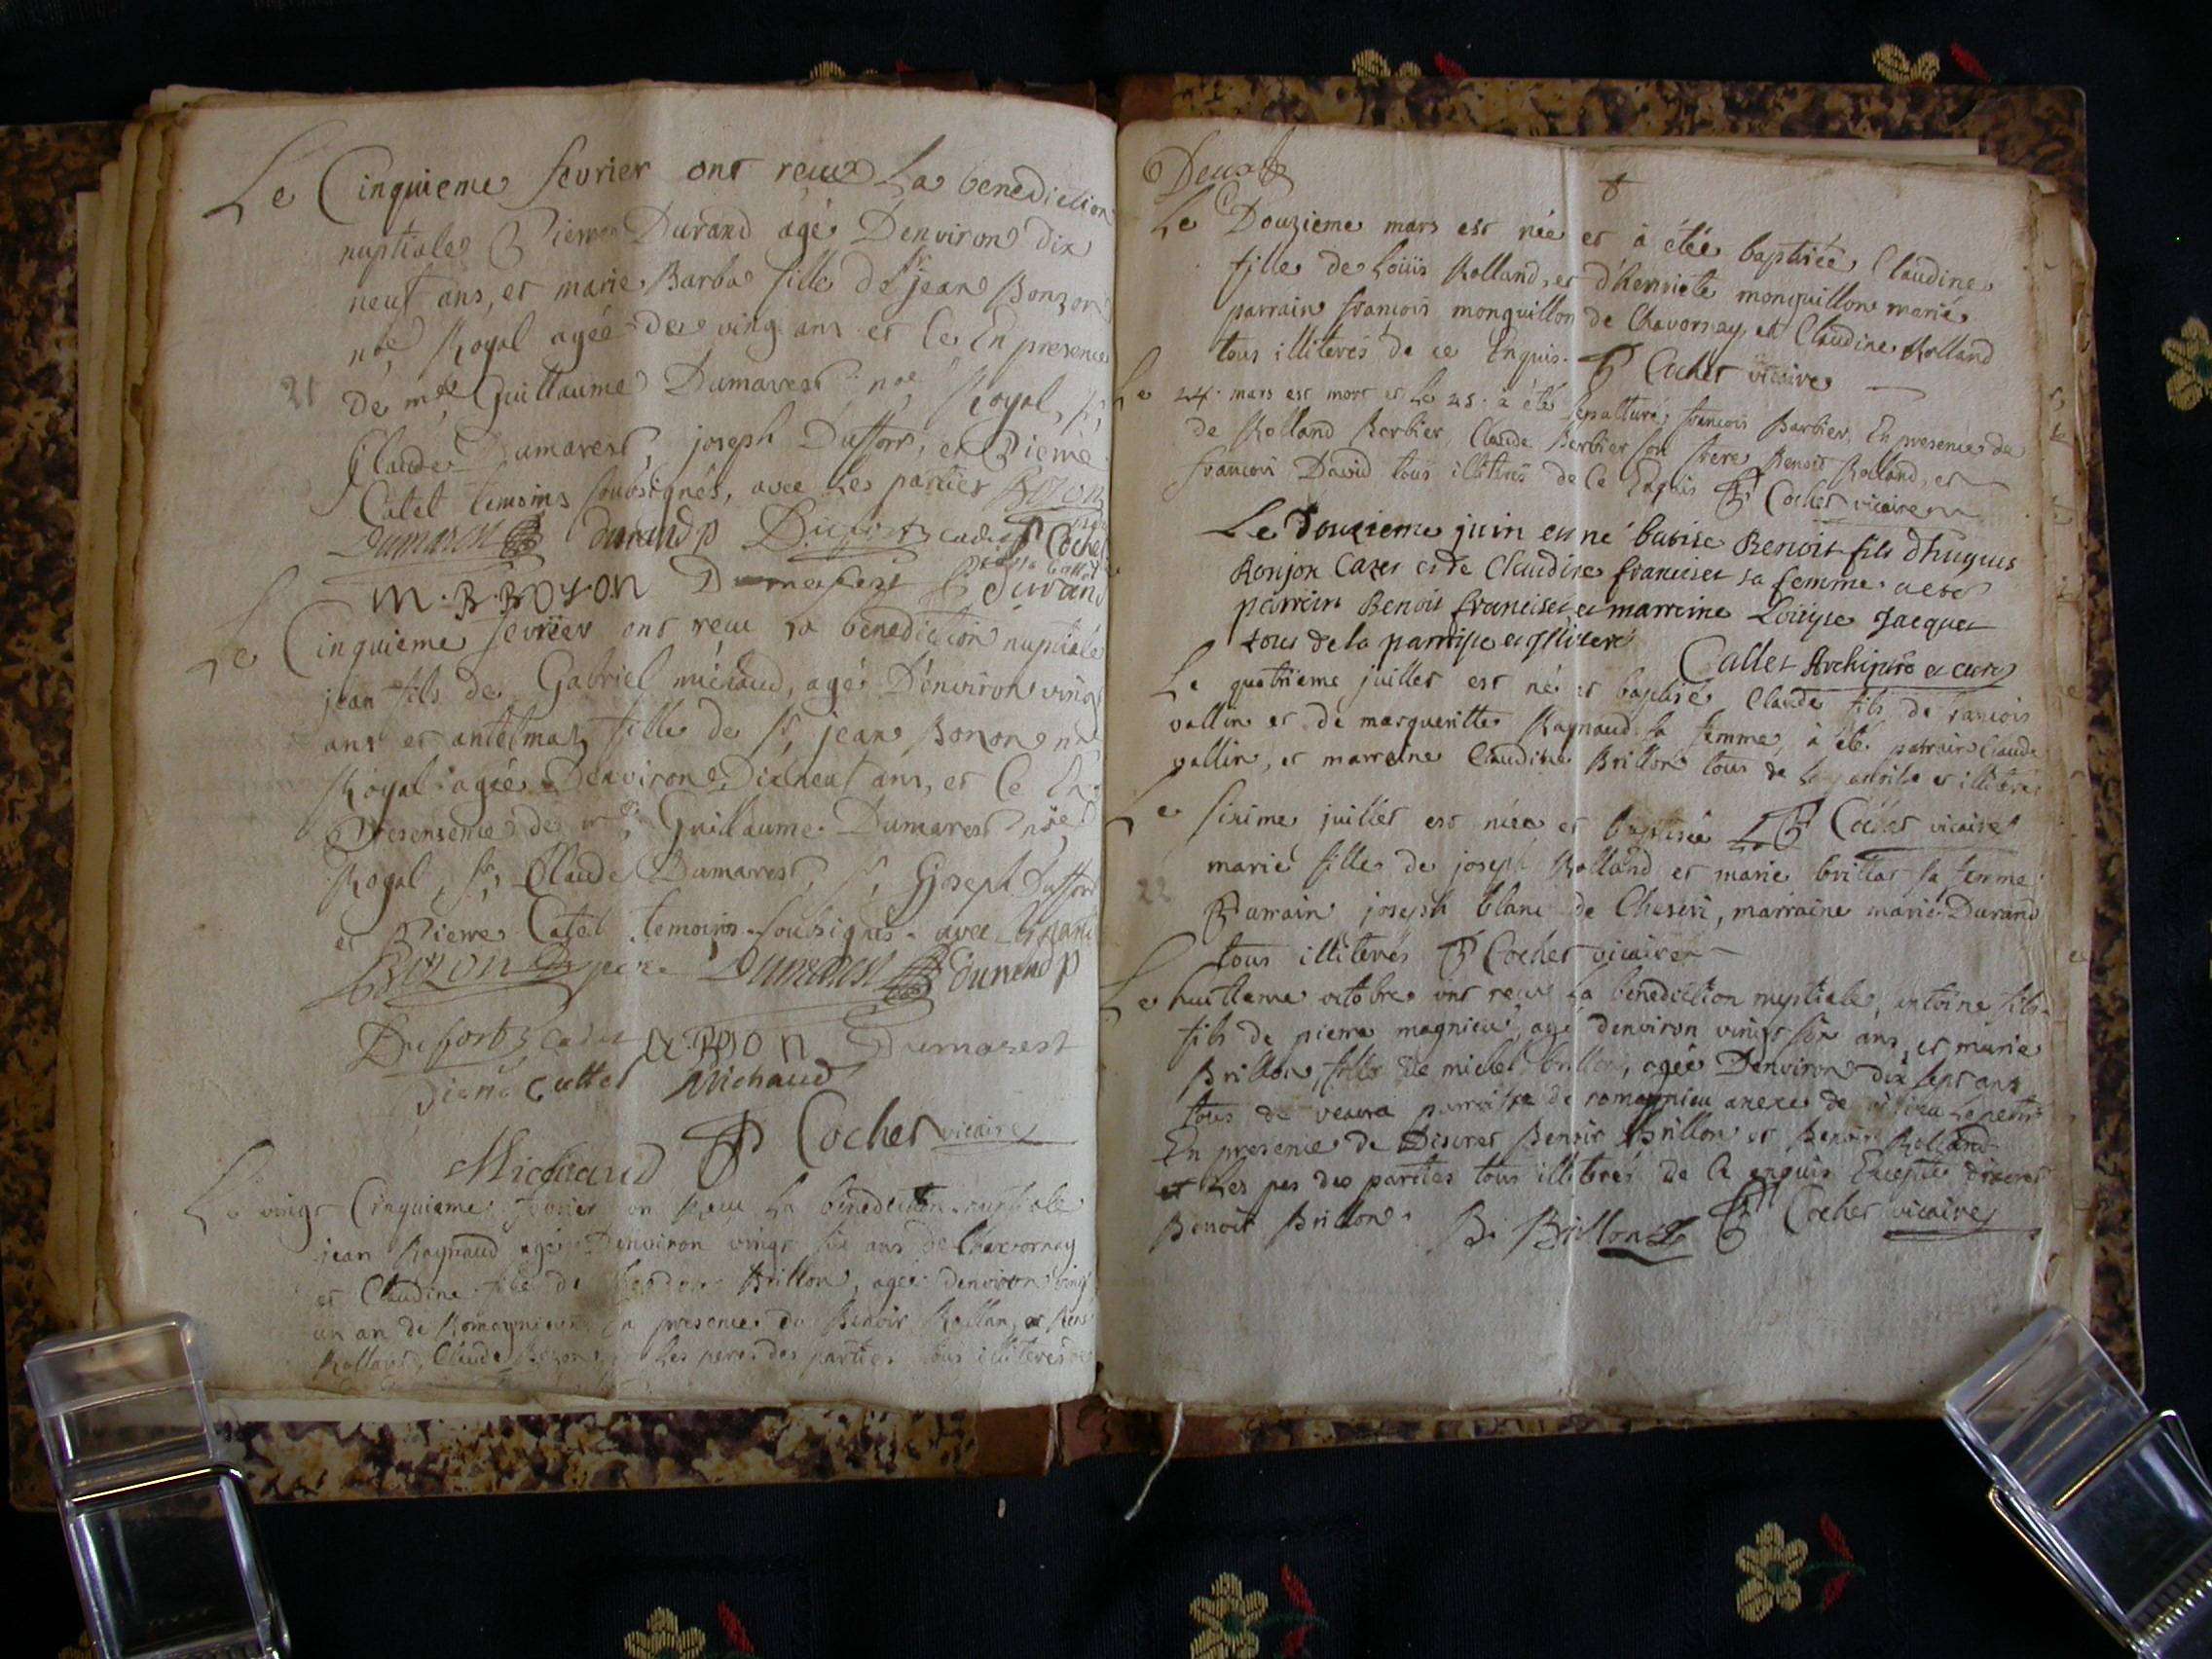 Le Cinquieme fevrier ont reçue La benediction
nuptiale Pierre Durand agé Denviron dix
neuf ans, et marie Barba fille de Sr jean Bonzon
nre Royal agée de ving ans et ce En presence
21
De me Guillaume Dumarest nre Royal, Sr
Claude Dumarest, joseph Duffort, et Pierre
Catel temoins soubsignés, avec Les parties Bozon
Dumarest Durand p Dufort cadet Cocher
M. B. BOZON Dumarest Durand
Le Cinquieme fevrier ont reçue La benediction nuptiale
jean fils de Gabriel michaud, agé D'environ ving
ans et antelmaz fille de Sr jean Bonzon nre
Royal agée D'environ Dixneuf ans, et ce En
Presensence de me Guillaume Dumarest nre
Royal, Sr Claude Dumarest, Sr Joseph Duffort
et Pierre Catel temoins soubsignés avec
Bozon père Dumarest Durand p
Dufort cadet BOZON Dumarest
pierre cattel Michaud
P Cocher vicaire
Michaud
Le vingt Cinquieme fevrier on Reçeu La benediction nuptiale
jean Raynaud agé Denviron vingt six ans de Chavornay
et Claudine fille de Brillon, agée denviron vingt
un an de Romagnieu En presence de Benoit Rollan, et
Rolland, Claude Les peres des parties tous illiterés
Deux
Le Douzieme mars est née et à étée baptisée Claudine
fille de Loüis Rolland, et d'henriete monguillon mariés
parrain françois monguillon de Chavornay, et Claudine Rolland
tous illiterés de ce Enquis. P Cocher vicaire
Le 24. mars est mort et Le 25. à été sepulturé françois Barbier, En presence de
de Rolland Berbier, Claude Berbier son frere Benoit Rolland, et
francois David tous illiterés de Ce Enquis P Cocher vicaire
Le Douzieme juin est né batise Benoit fils dhugues
Bonjon Cazet et de Claudine franciset sa femme a esté
parrain Benoit franciset et marraine Loüise Jacquet
tous de la parroisse et illiterés
Callet Archiprê et curé
Le quatrieme juillet est né et baptisé Claude fils de francois
vallin et de margueritte Raynaud sa femme, à été parrain Claude
vallin, et marreine Claudine Brillon tous de La parroisse et illiterés
P Cocher vicaire
Le sixime juillet est née et baptisée
22
marie fille de joseph Rolland et marie brillat sa femme
Parrain joseph blanc de Cheseri, marraine marie Durand
tous illiterés P Cocher vicaire
Le huitieme octobre ont reçue La benediction nuptiale, antoine fils
fils de pierre magnieu, agé denviron vingt six ans, et marie
Brillon, fille de michel brillon, agée Denviron dix sept ans
tous de veaura parroisse de romagnieu anexe de Lepetit
En presence de Discret Benoit Brillon et Benoit Rolland
et Les pes des parties tous illiterés de Ce enquis Excepté discret
Benoit Brillon. B. Brillon P Cocher vicaire